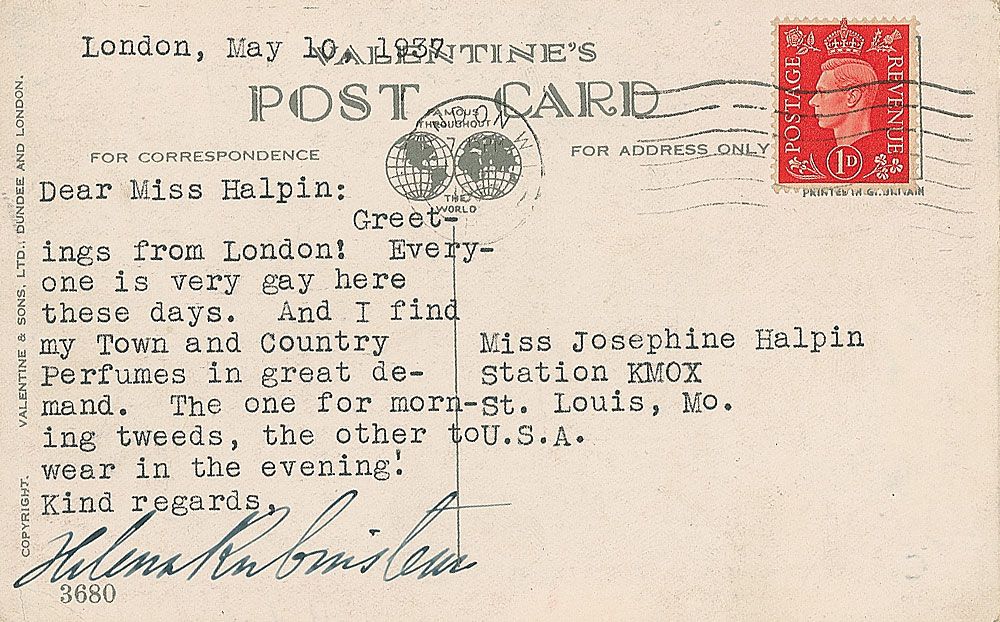 London, May 10, 1937
VALENTINE'S
POST CARD
FAMOUS
THROUGHOUT
THE
WORLD
FOR CORRESPONDENCE
FOR ADDRESS ONLY
POSTAGE
REVENUE
1D
PRINTED IN GT. BRITAIN
Dear Miss Halpin:
Greet-
ings from London! Every-
one is very gay here
these days. And I find
my Town and Country
Perfumes in great de-
mand. The one for morn-
ing tweeds, the other to
wear in the evening!
Kind regards,
Helena Rubinstein
3680
Miss Josephine Halpin
Station KMOX
St. Louis, Mo.
U.S.A.
COPYRIGHT. VALENTINE & SONS, LTD., DUNDEE AND LONDON.